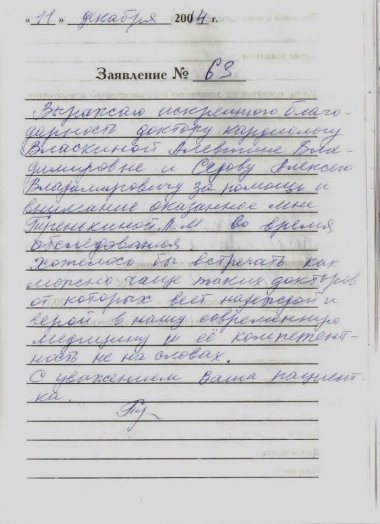 « 11 » декабря 2004 г.
Заявление № 63
Выражаю искреннюю благо-
дарность доктору кардиологу
Власкиной Алевтине Вла-
димировне и Седову Алексею
Владимировичу за помощь и
внимание оказанное мне
А.М. во время
обследования
Хотелось бы встречать как
можно чаще таких докторов
от которых веет надеждой и
верой в нашу современную
медицину и её компетент-
ность не на словах.
С уважением Ваша пациент-
ка